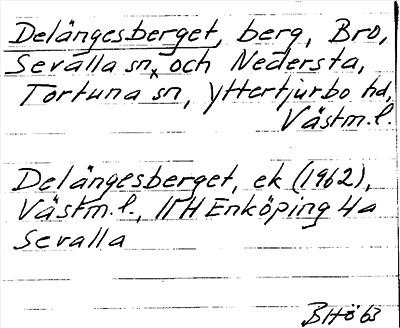 Delängesberget, berg, Bro,
Sevalla sn, och Nedersta,
Tortuna sn, Yttertjurbo hd,
Västm.l.
Delängesberget, ek (1962),
Västm.l., 11H Enköping 4a
Sevalla
BHö 63